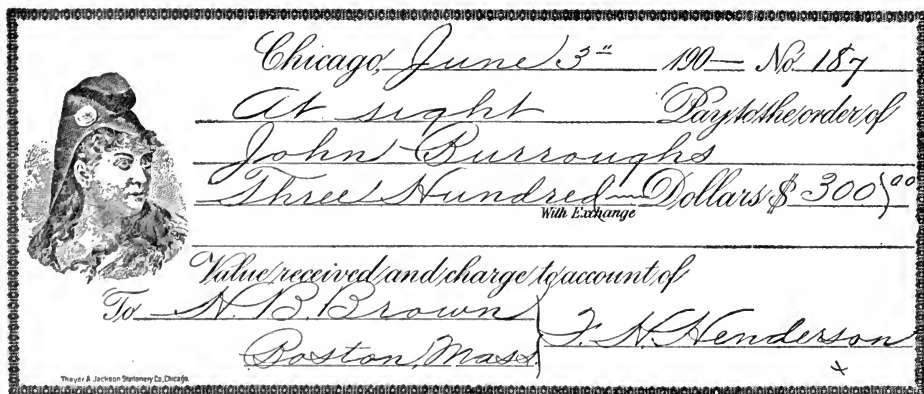 Chicago, June 3" 190— No. 187
At sight Pay to the order of
John Burroughs
Three Hundred — Dollars $ 300 00
With Exchange
Value received and charge to account of
To H. B. Brown
Boston, Mass.
F. H. Henderson
x
Thayer & Jackson Stationery Co., Chicago.